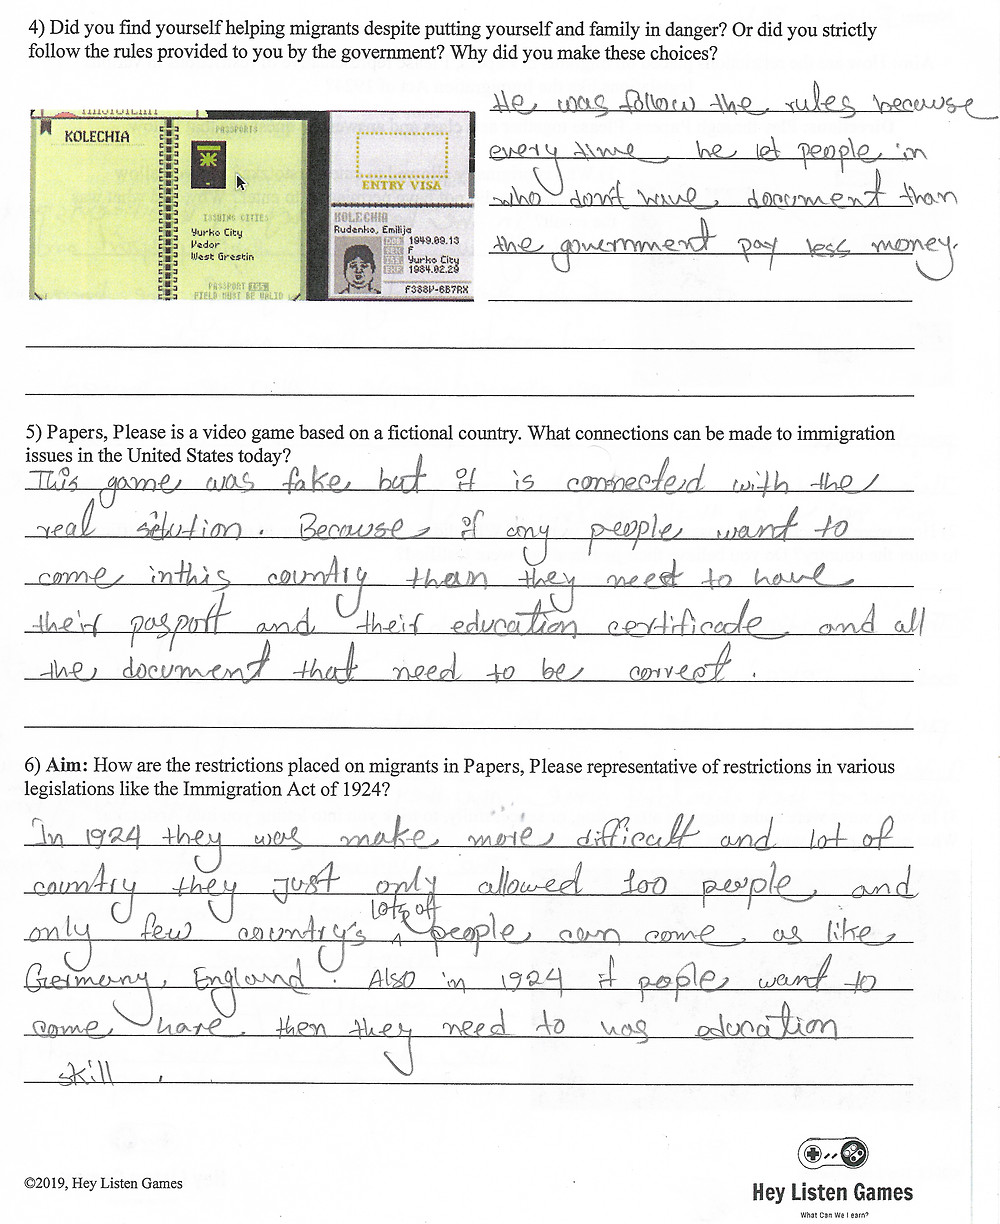 4) Did you find yourself helping migrants despite putting yourself and family in danger? Or did you strictly
follow the rules provided to you by the government? Why did you make these choices?
KOLECHIA
PASSPORTS
ISSUING CITIES
Yurko City
Vedor
West Grestin
PASSPORT ISS.
FIELD MUST BE VALID
ENTRY VISA
KOLECHIA
Rudenko, Emilija
DOB 1949.09.13
SEX F
ISS Yurko City
EXP 1984.02.29
F388V-6B7RX
He was follow the rules because
every time he let people in
who don't have document than
the government pay less money.
5) Papers, Please is a video game based on a fictional country. What connections can be made to immigration
issues in the United States today?
This game was fake but it is connected with the
real sitution. Because if any people want to
come inthis country then they need to have
their pasport and their education certificade and all
the document that need to be correct.
6) Aim: How are the restrictions placed on migrants in Papers, Please representative of restrictions in various
legislations like the Immigration Act of 1924?
In 1924 they was make more difficalt and lot of
country they just only allowed 100 people and
only few country's lots off people can come as like
Germany, England. Also in 1924 if pople want to
come hare then they need to has education
skill.
©2019, Hey Listen Games
Hey Listen Games
What Can We Learn?